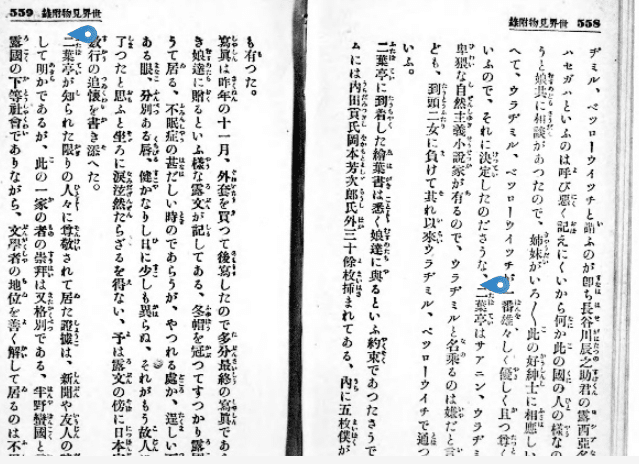 世界見物附錄
558
ヂミル、ペツローウイツチと謂ふのが卽ち長谷川辰之助君の露西亞名
ハセガハといふのは呼び惡く記えにくいから何か此の國の人の樣なの
うと娘共に相談があつたので、姉妹がいろ〱此の好紳士に相應しい
へて、ウラヂミル、ペツローウイツチが一番雄々しく優しく且つ尊く
いふので、それに決定したのださうな、二葉亭はサアニン、ウラヂミ
卑猥な自然主義小說家が有るので、ウラヂミルと名乘るのは嫌だと言
ども、到頭二女に負けて其れ以來ウラヂミル、ペツローウイチで通つ
いふ。
二葉亭に到着した繪葉書は悉く娘達に與るといふ約束であつたさうで
ムには內田貢氏岡本芳次郞氏外三十餘枚挿まれてある、內に五枚僕が
559
世界見物附錄
も有つた。
寫眞は昨年の十一月、外套を買つて後寫したので多分最終の寫眞であ
き娘達に贈るといふ樣な露文が記してある、冬帽を冠つてすつかり露
うて居る、不眠症の甚だしい時のであらうが、やつれる處か、逞しい
ある眼、分別ある唇、健かなりし日に少しも異らぬ、それがもう故人
了つたと思ふと坐ろに淚泫然たらざるを得ない、予は露文の傍に日本
數行の追懷を書き添へた。
二葉亭が知られた限りの人々に尊敬されて居た證據は、新聞や友人の
して明かであるが、此の一家の者の崇拜は又格別である、半野蠻國と
露國の下等社會でありながら、文學者の地位を善く解して居るのは不